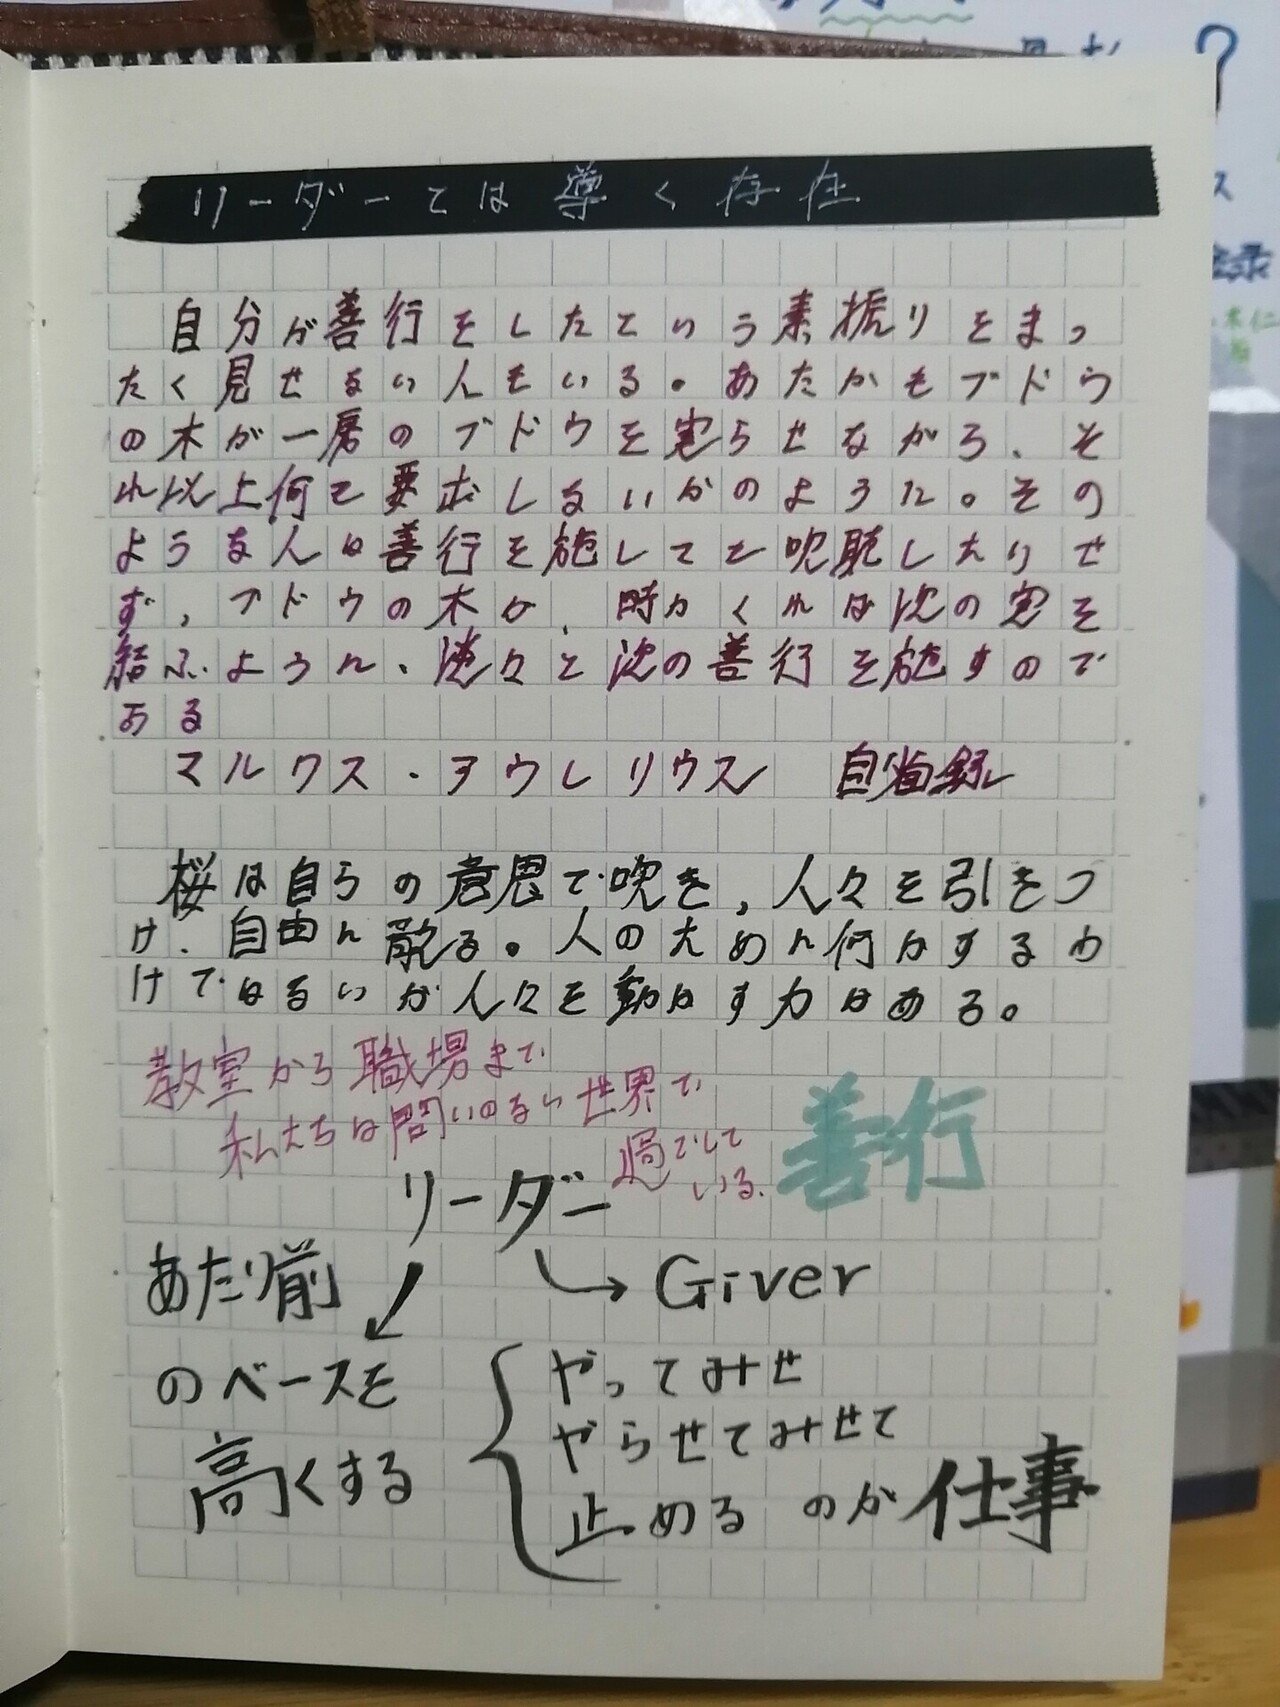 リーダーとは導く存在
自分が善行をしたという素振りをまっ
たく見せない人もいる。あたかもブドウ
の木が一房のブドウを実らせながら、そ
れ以上何も要求しないかのように。その
ような人は善行を施しても吹聴したりせ
ず,ブドウの木が、時がくれば次の実を
結ぶように、淡々と次の善行を施すので
ある
マルクス・アウレリウス 自省録
桜は自らの意思で咲き,人々を引きつ
け、自由に散る。人のために何かするわ
けではないが人々を動かす力はある。
教室から職場まで
私たちは問いのない世界で
過ごして
いる.
善行
リーダー
Giver
あたり前
のベースを
高くする
やってみせ
やらせてみせて
止める のが仕事
?
ス
録